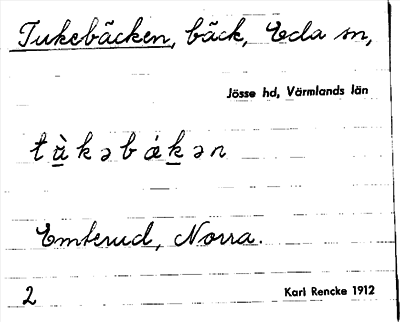 Tukebäcken, bäck, Eda sn,
Jösse hd, Värmlands län
tu̠̇kəbák̠ən
Emterud, Norra.
2
Karl Rencke 1912